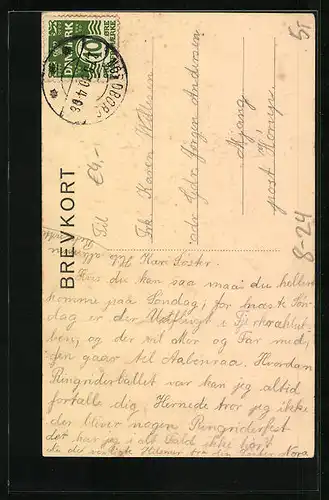 BREVKORT
DANMARK
10
ØRE
Til
Frk Karen Willesen
adr Gdr. Jørgen Andersen
Mjang
post Hörup.
8-24
Kære Søster.
Hvis du kan saa maa du hellere
komme paa Søndag, for næste Søn-
dag er der Udflugt i
ben, og der vil Mor og Far med,
den gaar til Aabenraa. Hvordan
Ringriderballet var kan jeg altid
fortælle dig. Hernede tror jeg ikke
der bliver nogen Ringriderfest
det har jeg i alt Fald ikke hørt
Hilsener fra din Søster Nora